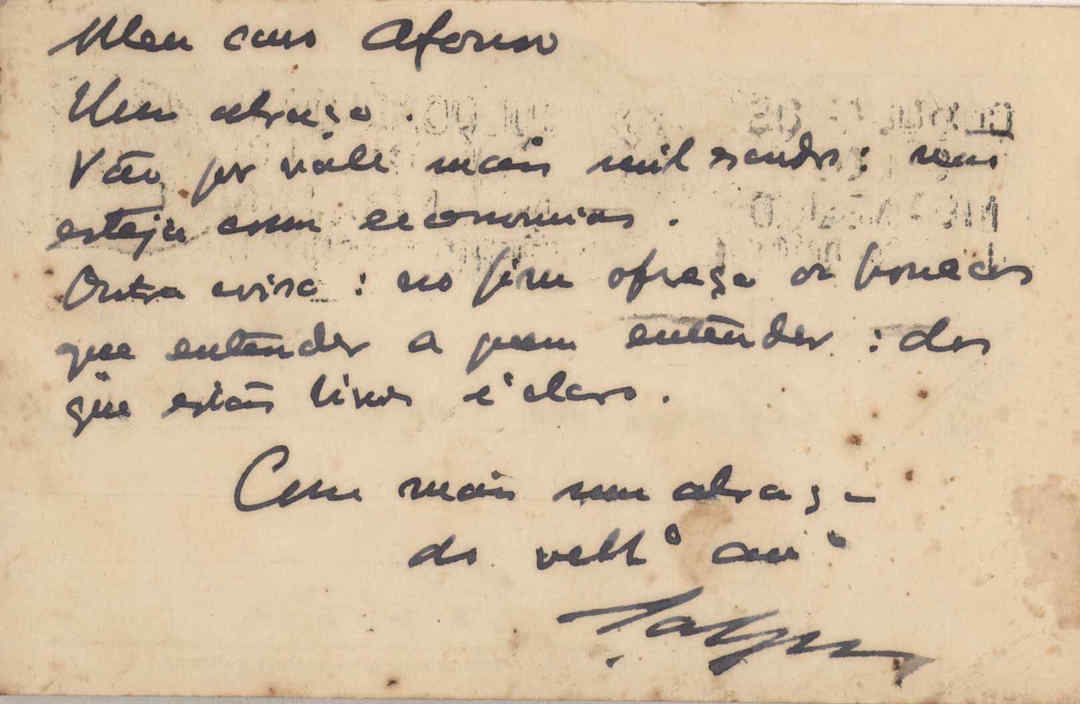 Meu caro Afonso
Um abraço.
Vão por vale mais mil escudos: nem
esteja com economias.
Outra coisa: no fim ofreça os bonecos
que entender a quem entender: dos
que estão livres é claro.
Com mais um abraço
do velhº amº